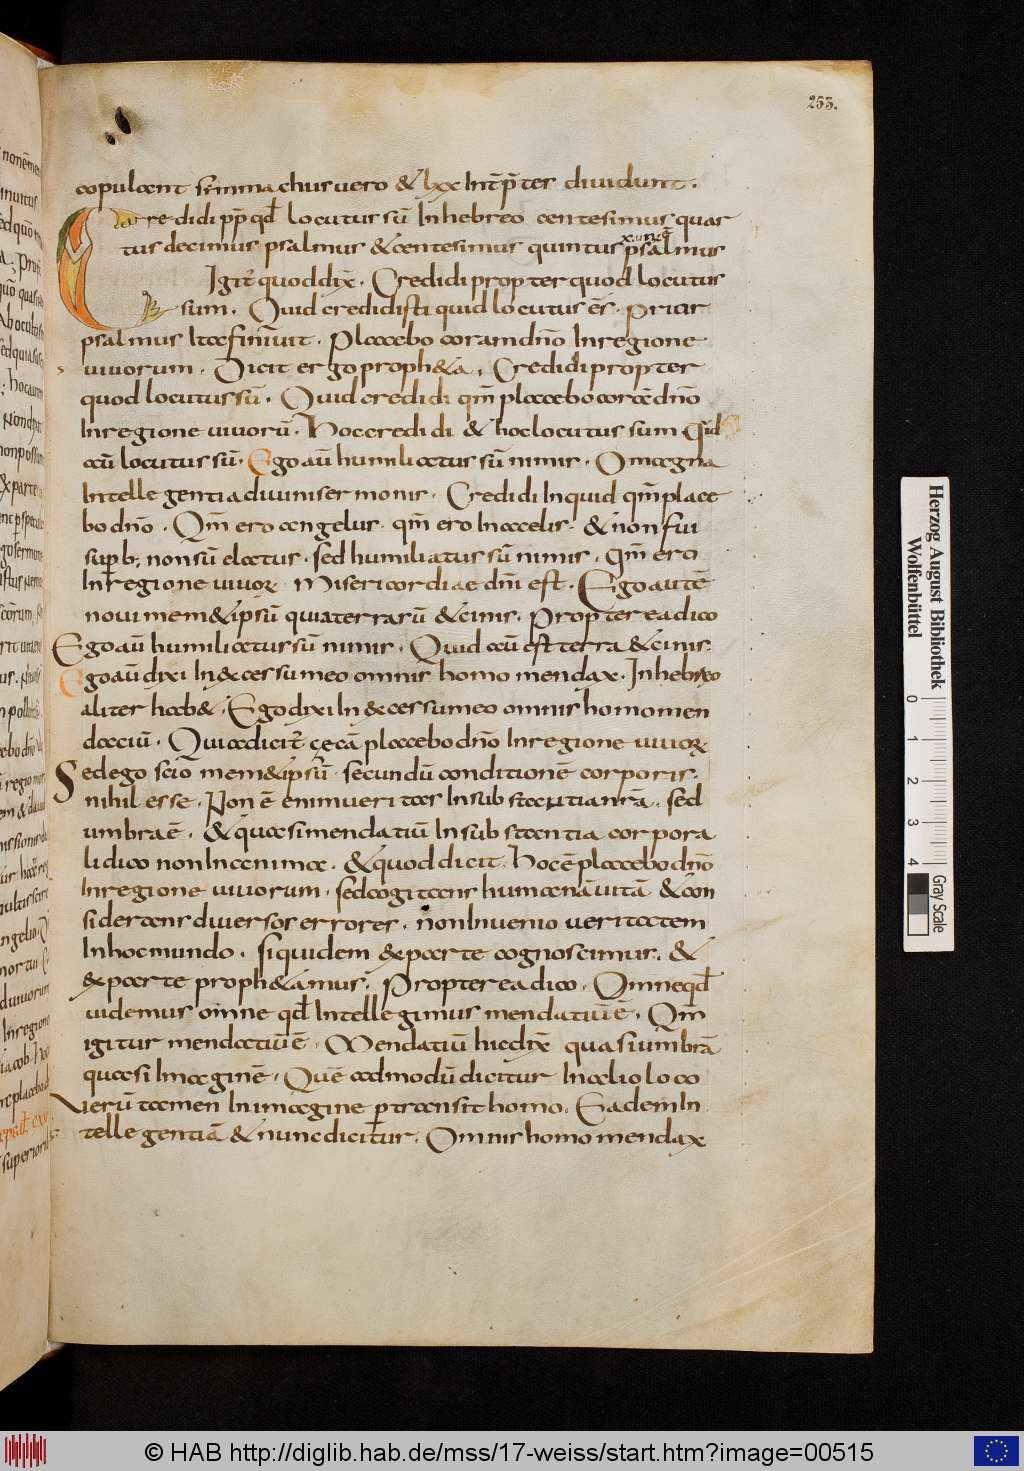 253.
copulant simmachus vero & lxx Int̄p̄ter dividunt.
Credidi pp̄ qd̄ locutus sū Inhebreo centesimus quar
tus decimus psalmus & centesimus quintus psalmus
Igit̄ quod dix̄. Credidi propter quod locutus
sum. Quid credidisti quid locutus ēs. Prior
psalmus Ita finivit. Placebo coram dn̄o In regione
vivorum. Dicit ergo proph&a, Credidi propter
quod locutus sū. Quid credidi qm̄ placebo corā dn̄o
In regione vivorū. Hoc credidi & hoc locutus sum Quid
aū locutus sū. Ego aū humiliatus sū nimis. O magna
Intellegentia divini sermonis. Credidi Inquid qm̄ place
bo dn̄o. Qm̄ ero angelus. qm̄ ero In caelis. & non fui
sup̄b; non sū elatus. sed humiliatus sū nimis. qm̄ ero
In regione vivoꝝ Misericordiae dn̄i est. Ego autē
novi mem&ipsū quia terra sū & cinis. Propterea dico
Ego aū humiliatus sū nimis. Quid aū est terra & cinis.
Ego aū dixi In excessu meo omnis homo mendax. In hebreo
aliter hab&. Ego dixi In excessu meo omnis homo men
daciū. Qui adicit̄ placebo dn̄o In regione vivoꝝ
Sed ego scio mem&ipsū secundū conditionē corporis.
nihil esse. Non ē enim veritas In substantia nr̄a. sed
umbra ē. & quasi mendatiū In substantia corpora
li dico non In anima. & quod dicit. Hoc ē placebo dn̄o
In regione vivorum. sed cogitans humanā vitā & con
siderans diversos errores. non Invenio veritatem
In hoc mundo. siquidem ex parte cognoscimus. &
ex parte proph&amus. Propterea dico. Omne qd̄
videmus omne qd̄ Intellegimus mendatiū ē. Qm̄
igitur mendatiū ē. Mendatiū hic dix̄ quasi umbrā
quasi Imaginē. Quē admodū dicitur In alio loco
Verū tamen In imagine p̄transit homo. Eadem In
tellegentiā & nunc dicitur. Omnis homo mendax
Herzog August Bibliothek
Wolfenbüttel
0 1 2 3 4
Gray Scale
© HAB http://diglib.hab.de/mss/17-weiss/start.htm?image=00515